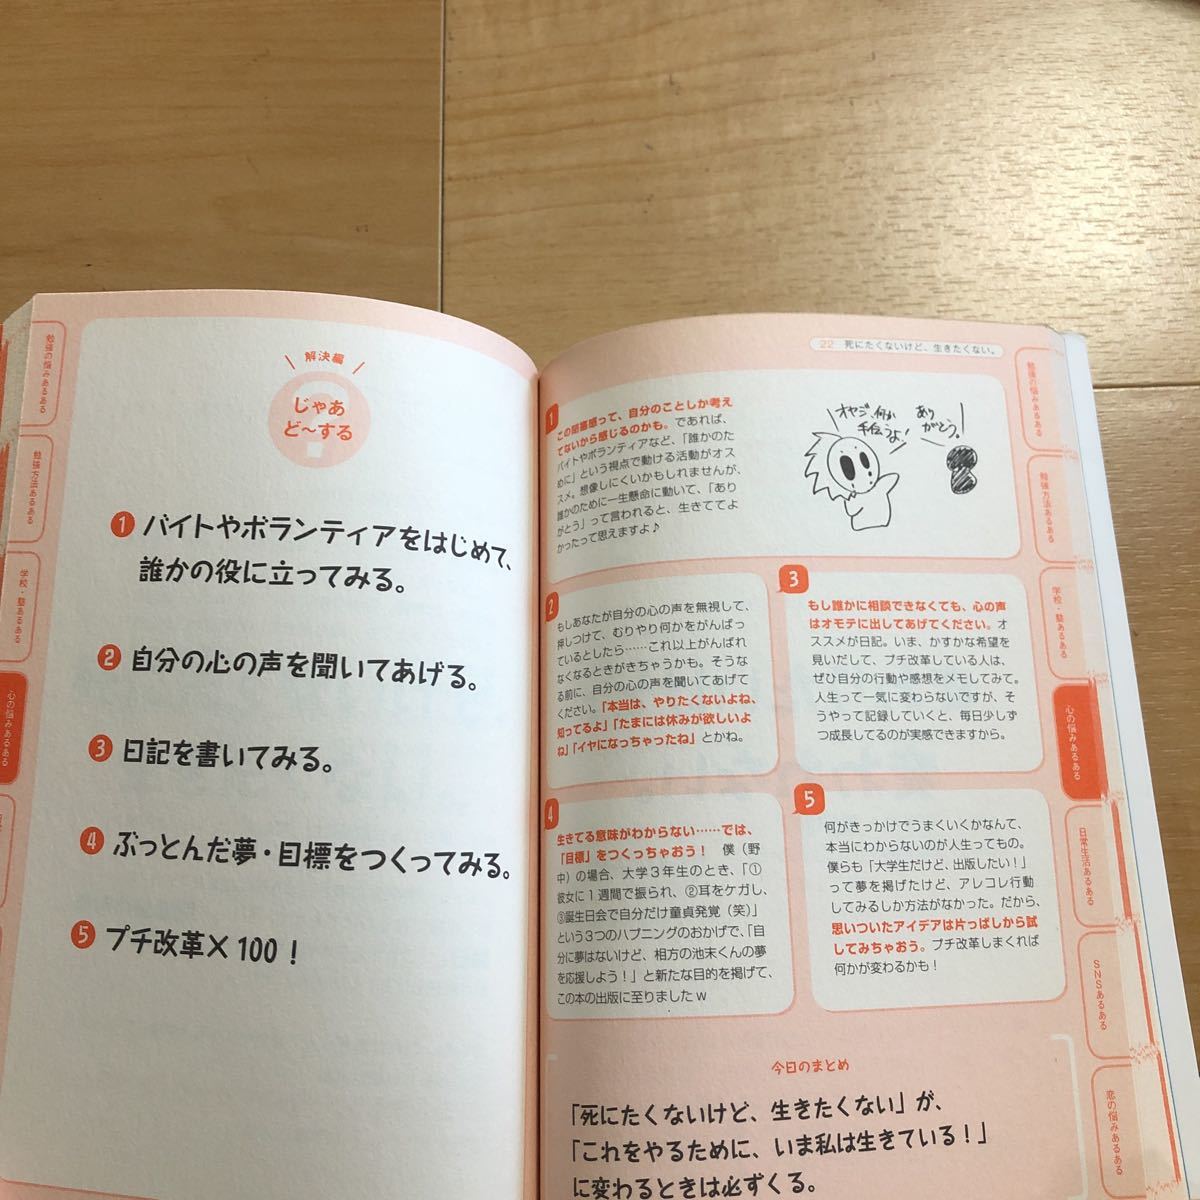 解決編
じゃあ
ど〜する
1 バイトやボランティアをはじめて、
誰かの役に立ってみる。
2 自分の心の声を聞いてあげる。
3 日記を書いてみる。
4 ぶっとんだ夢・目標をつくってみる。
5 プチ改革×100！
勉強の悩みあるある
勉強方法あるある
学校・塾あるある
心の悩みあるある
22 死にたくないけど、生きたくない。
1
この閉塞感って、自分のことしか考え
てないから感じるのかも。であれば、
バイトやボランティアなど、「誰かのた
めに」という視点で動ける活動がオス
スメ。想像しにくいかもしれませんが、
誰かのために一生懸命に動いて、「あり
がとう」って言われると、生きててよ
かったって思えますよ♪
オヤジ、何か
手伝うよ！
あり
がとう。
2
もしあなたが自分の心の声を無視して、
押しつけて、むりやり何かをがんばっ
ているとしたら……これ以上がんばれ
なくなるときがきちゃうかも。そうな
る前に、自分の心の声を聞いてあげて
ください。「本当は、やりたくないよね、
知ってるよ」「たまには休みが欲しいよ
ね」「イヤになっちゃったね」とかね。
3
もし誰かに相談できなくても、心の声
はオモテに出してあげてください。オ
ススメが日記。いま、かすかな希望を
見いだして、プチ改革している人は、
ぜひ自分の行動や感想をメモしてみて。
人生って一気に変わらないですが、そ
うやって記録していくと、毎日少しず
つ成長してるのが実感できますから。
4
生きてる意味がわからない……では、
「目標」をつくっちゃおう！　僕（野
中）の場合、大学3年生のとき、「①
彼女に1週間で振られ、②耳をケガし、
③誕生日会で自分だけ童貞発覚（笑）」
という3つのハプニングのおかげで、「自
分に夢はないけど、相方の池末くんの夢
を応援しよう！」と新たな目的を掲げて、
この本の出版に至りましたw
5
何がきっかけでうまくいくかなんて、
本当にわからないのが人生ってもの。
僕らも「大学生だけど、出版したい！」
って夢を掲げたけど、アレコレ行動
してみるしか方法がなかった。だから、
思いついたアイデアは片っぱしから試
してみちゃおう。プチ改革しまくれば
何かが変わるかも！
今日のまとめ
「死にたくないけど、生きたくない」が、
「これをやるために、いま私は生きている！」
に変わるときは必ずくる。
勉強の悩みあるある
勉強方法あるある
学校・塾あるある
心の悩みあるある
日常生活あるある
SNSあるある
恋の悩みあるある